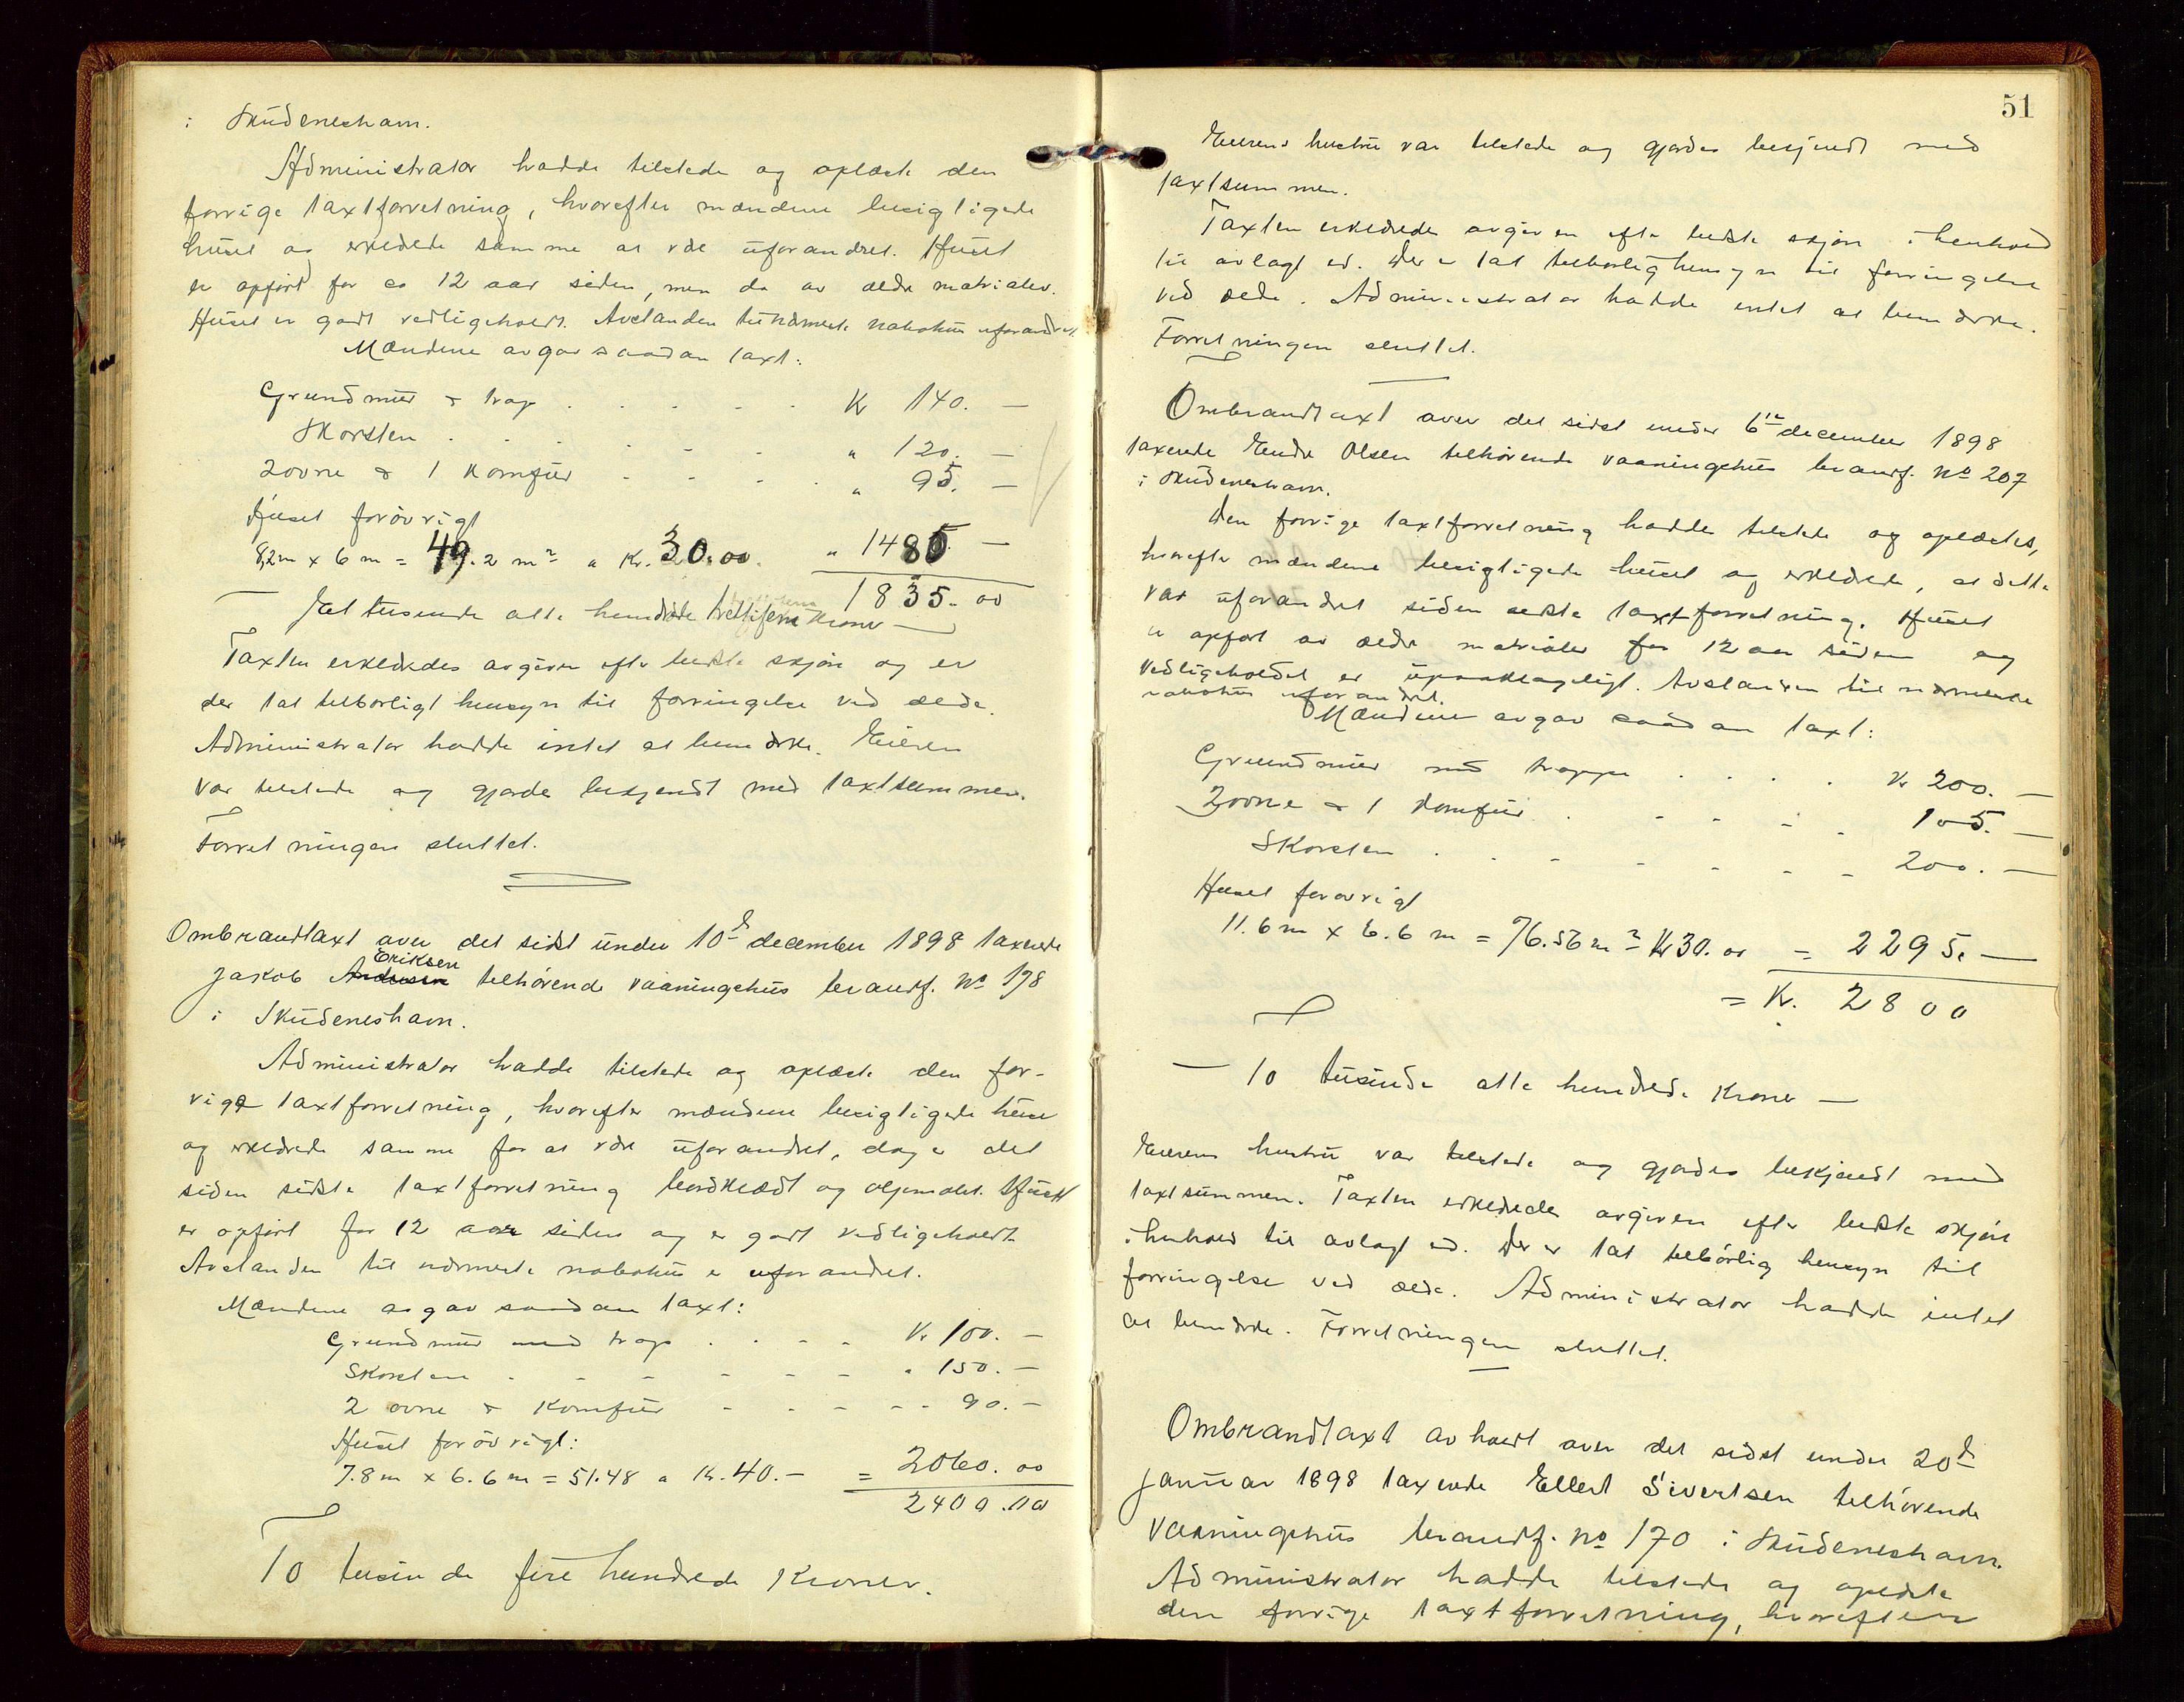 i Skudeneshavn.
Administrator hadde tilstede og oplæste den
forrige taxtforretning, hvorefter mændene besigtigede
huset og erklærede samme at være uforandret. Huset
er opført for ca 12 aar siden, men da av ældre materialer.
Huset er godt vedligeholdt. Avstanden til nærmeste nabohus uforandret.
Mændene avgav saadan taxt:
Grundmur & trap . . . . . Kr 140. —
Skorsten . . . . . . " 120. —
2 ovne & 1 Komfur . . . . " 95. —
Huset forøvrigt
8,2m x 6 m = 49.2 m² a Kr. 30.00. " 1480. —
1835. 00
— Et tusende otte hundrede trettifem Kroner —
Taxten erklæredes avgiven efter bedste skjøn og er
der tat tilbørligt hensyn til forringelse ved ælde.
Administrator hadde intet at bemærke. Eieren
var tilstede og gjordes bekjendt med taxtsummen.
Forretningen sluttet.
Ombrandtaxt over det sidst under 10de december 1898 taxerede
Eriksen
Jakob Andersen tilhørende vaaningshus brandf. No 178
i Skudeneshavn.
Administrator hadde tilstede og oplæste den for-
rige taxtforretning, hvorefter mændene besigtigede huset
og erklærede samme for at være uforandret, dog er det
siden sidste taxtforretning bordklædt og oljemalet. Huset
er opført for 12 aar siden og er godt vedligeholdt.
Avstanden til nærmeste nabohus er uforandret.
Mændene avgav saadan taxt:
Grundmur med trap . . . . Kr 100. —
Skorsten . . . . . . " 150. —
2 ovne & Komfur - - - - - 90. —
Huset forøvrigt:
7.8 m x 6.6 m = 51.48 a Kr. 40. — = 2060. 00
2400.00
To tusinde fire hundrede Kroner.
51
Eierens hustru var tilstede og gjordes bekjendt med
taxtsummen.
Taxten erklæredes avgiven efter bedste skjøn i henhold
til avlagt ed. Der er tat tilbørlig hensyn til forringelse
ved ælde. Administrator hadde intet at bemærke.
Forretningen sluttet.
Ombrandtaxt over det sidst under 6te december 1898
taxerede Endre Olsen tilhørende vaaningshus brandf. No 207
i Skudeneshavn.
Den forrige taxtforretning hadde tilstede og oplæstes,
hvorefter mændene besigtigede huset og erklærede, at dette
var uforandret siden sidste taxtforretning. Huset
er opført av ældre materialer for 12 aar siden og
vedligeholdet er upaaklageligt. Avstanden til nærmeste
nabohus uforandret.
Mændene avgav saadan taxt:
Grundmur med trappe . . . . Kr 200. —
2 ovne & 1 Komfur . - - - - 105. —
Skorsten . . - - - - - 200. —
Huset forøvrigt
11.6 m x 6.6 m = 76.56 m² Kr 30. 00 = 2295. —
= Kr. 2800
— To tusinde otte hundrede Kroner —
Eierens hustru var tilstede og gjordes bekjendt med
taxtsummen. Taxten erklæredes avgiven efter bedste skjøn
i henhold til avlagt ed. Der er tat tilbørlig hensyn til
forringelse ved ælde. Administrator hadde intet
at bemærke. Forretningen sluttet.
Ombrandtaxt avholdt over det sidst under 20de
januar 1898 taxerede Ellert Sivertsen tilhørende
vaaningshus brandf. No 170 i Skudeneshavn.
Administrator hadde tilstede og oplæste
den forrige taxtforretning, hvorefter